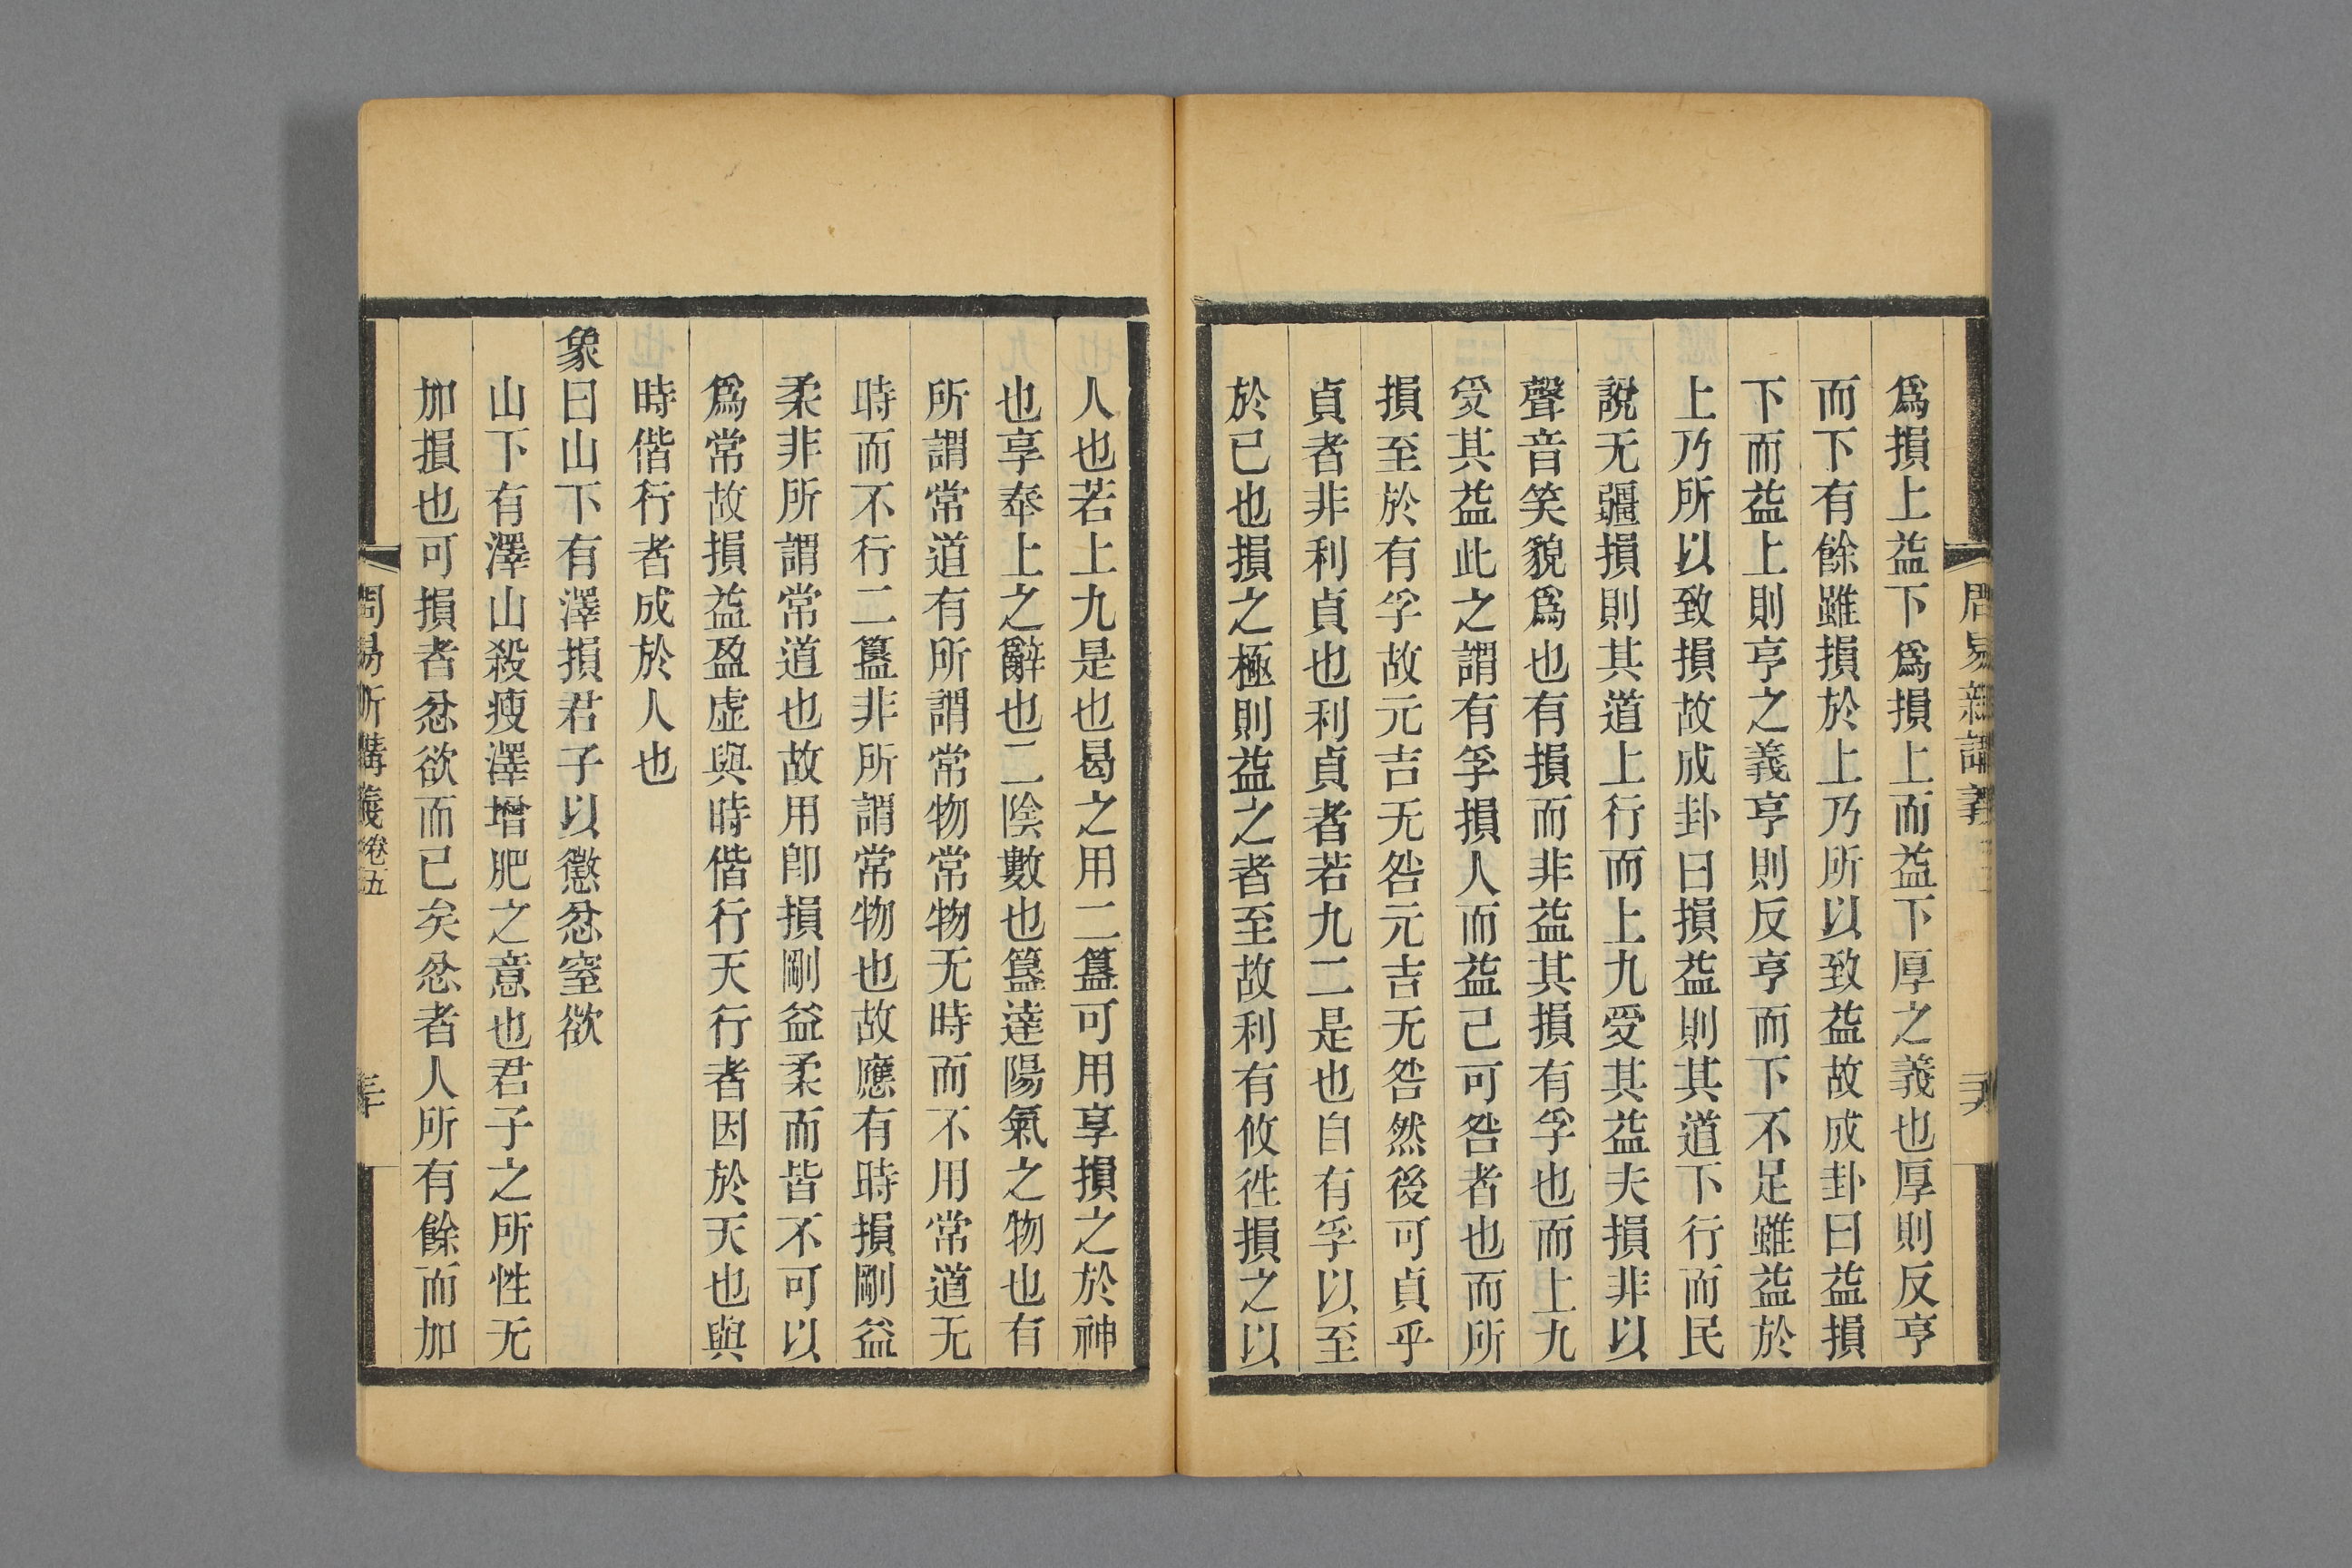 爲損上益下爲損上而益下厚之義也厚則反亨
而下有餘雖損於上乃所以致益故成卦曰益損
下而益上則亨之義亨則反亨而下不足雖益於
上乃所以致損故成卦曰損益則其道下行而民
說无疆損則其道上行而上九受其益夫損非以
聲音笑貌爲也有損而非益其損有孚也而上九
受其益此之謂有孚損人而益己可咎者也而所
損至於有孚故元吉无咎元吉无咎然後可貞乎
貞者非利貞也利貞者若九二是也自有孚以至
於已也損之極則益之者至故利有攸徃損之以
人也若上九是也曷之用二簋可用享損之於神
也享奉上之辭也二陰數也簋達陽氣之物也有
所謂常道有所謂常物常物无時而不用常道无
時而不行二簋非所謂常物也故應有時損剛益
柔非所謂常道也故用卽損剛益柔而皆不可以
爲常故損益盈虛與時偕行天行者因於天也與
時偕行者成於人也
象曰山下有澤損君子以懲忿窒欲
山下有澤山殺瘦澤增肥之意也君子之所性无
加損也可損者忿欲而已矣忿者人所有餘而加
周易新講義卷五